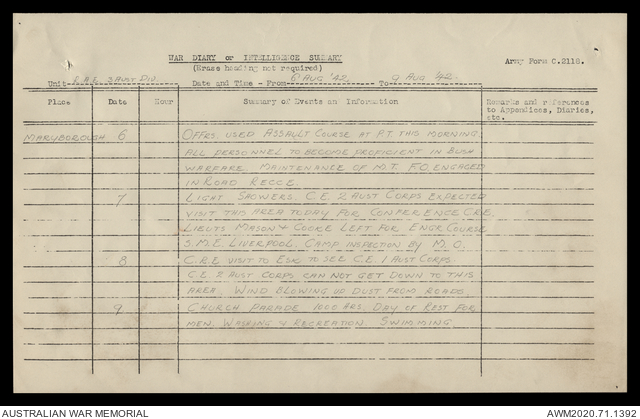 WAR DIARY or INTELLIGENCE SUMMARY
(Erase heading not required)
Army Form C.2118.
Unit R.A.E. 3 AUST DIV. Date and Time - From 6 AUG '42 To 9 AUG '42.
Place Date Hour Summary of Events and Information Remarks and references
to Appendices, Diaries,
etc.
MARYBOROUGH 6 OFFRS. USED ASSAULT COURSE AT P.T. THIS MORNING.
ALL PERSONNEL TO BECOME PROFICIENT IN BUSH
WARFARE. MAINTENANCE OF M.T. F.O. ENGAGED
IN ROAD RECCE.
7 LIGHT SHOWERS. C.E. 2 AUST CORPS EXPECTED
VISIT THIS AREA TODAY FOR CONFERENCE C.R.E.
LIEUTS MASON & COOKE LEFT FOR ENGR COURSE
S.M.E. LIVERPOOL. CAMP INSPECTION BY M.O.
8 C.R.E VISIT TO ESK TO SEE C.E. 1 AUST CORPS.
C.E 2 AUST CORPS CAN NOT GET DOWN TO THIS
AREA. WIND BLOWING UP DUST FROM ROADS.
9 CHURCH PARADE 1000 HRS. DAY OF REST FOR
MEN. WASHING & RECREATION SWIMMING
AUSTRALIAN WAR MEMORIAL
AWM2020.71.1392